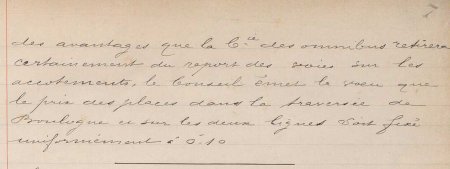 7
des avantages que la Cie des omnibus retirera
certainement du report des voies sur les
accotements, le Conseil émet le voeu que
le prix des places dans la traversée de
Boulogne et sur les deux lignes soit fixé
uniformément à 0.10